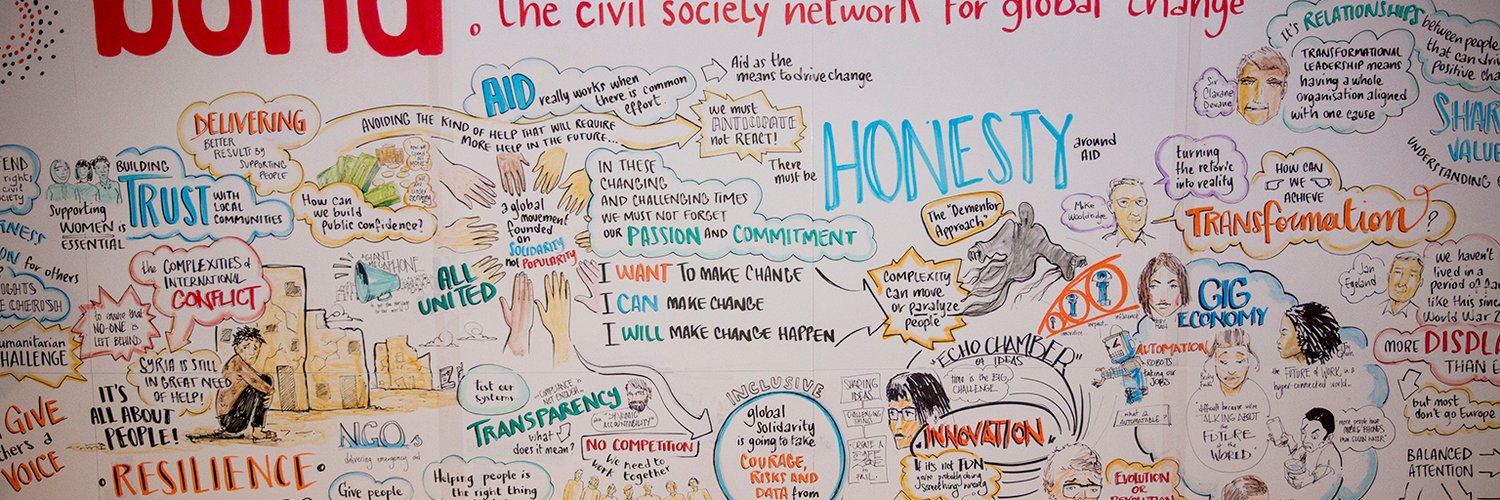 bond
. the civil society network for global change
AID really works when
there is common
effort.
Aid as the
means to drive change
DELIVERING
BETTER
RESULTS BY
SUPPORTING
PEOPLE
AVOIDING THE KIND OF HELP THAT WILL REQUIRE
MORE HELP IN THE FUTURE...
we must
ANTICIPATE
not REACT!
There
must be
HONESTY
around
AID
It's RELATIONSHIPS between people
that can drive
positive cha
TRANSFORMATIONAL
LEADERSHIP means
having a whole
organisation aligned
with one cause
Sir
Devane
SHAR
VALUE
UNDERSTANDING
rights
civil
society
Supporting
WOMEN is
ESSENTIAL
BUILDING
TRUST WITH
LOCAL
COMMUNITIES
How can
we build
Public confidence?
a global
movement
founded
on
SOLIDARITY
not POPULARITY
IN THESE
CHANGING
AND CHALLENGING TIMES
WE MUST NOT FORGET
OUR PASSION AND COMMITMENT
The "Dementor
Approach"
Mike
Wooldridge
turning
the retoric
into reality
HOW CAN
WE
ACHIEVE
TRANSFORMATION?
for others
the COMPLEXITIES of
INTERNATIONAL
CONFLICT
to ensure that
NO-ONE is
LEFT BEHIND
GIANT
MEGAPHONE
ALL
UNITED
I WANT TO MAKE CHANGE
I CAN MAKE CHANGE
I WILL MAKE CHANGE HAPPEN
COMPLEXITY
can move
or paralyze
people
GIG
ECONOMY
Jan
Egeland
we haven't
lived in a
period of
like this since
World War 2
humanitarian
CHALLENGE
SYRIA IS STILL
IN GREAT NEED
OF HELP!
IT'S
ALL ABOUT
PEOPLE!
"ECHO CHAMBER"
OF IDEAS
time is the BIG
CHALLENGE
AUTOMATION
ROBOTS
taking our
JOBS
the FUTURE of WORK in a
hyper-connected world.
MORE DISPL
THAN E
but most
don't go Europe
GIVE
others a
VOICE
NGOs
delivering emergency aid
test our
systems
COMPLIANCE IS
NOT ENOUGH
"DYNAMIC
ACCOUNTABILITY"
TRANSPARENCY
what
does it mean?
NO COMPETITION
we need to
work together
INCLUSIVE
global
solidarity
is going to take
COURAGE,
RISKS AND
DATA from
SHARING
IDEAS
CHALLENGING
CREATE A
SAFE
to
FAIL
INNOVATION
If it's not FUN
you're probably doing
something wrong
what is
AUTOMATABLE?
difficult because we're
TALKING ABOUT
the
FUTURE
of the
WORLD
more people have
MOBILE PHONES
than clean water
EVOLUTION
OR
REVOLUTION
BALANCED
ATTENTION
RESILIENCE
Give people
Helping people is
the right thing